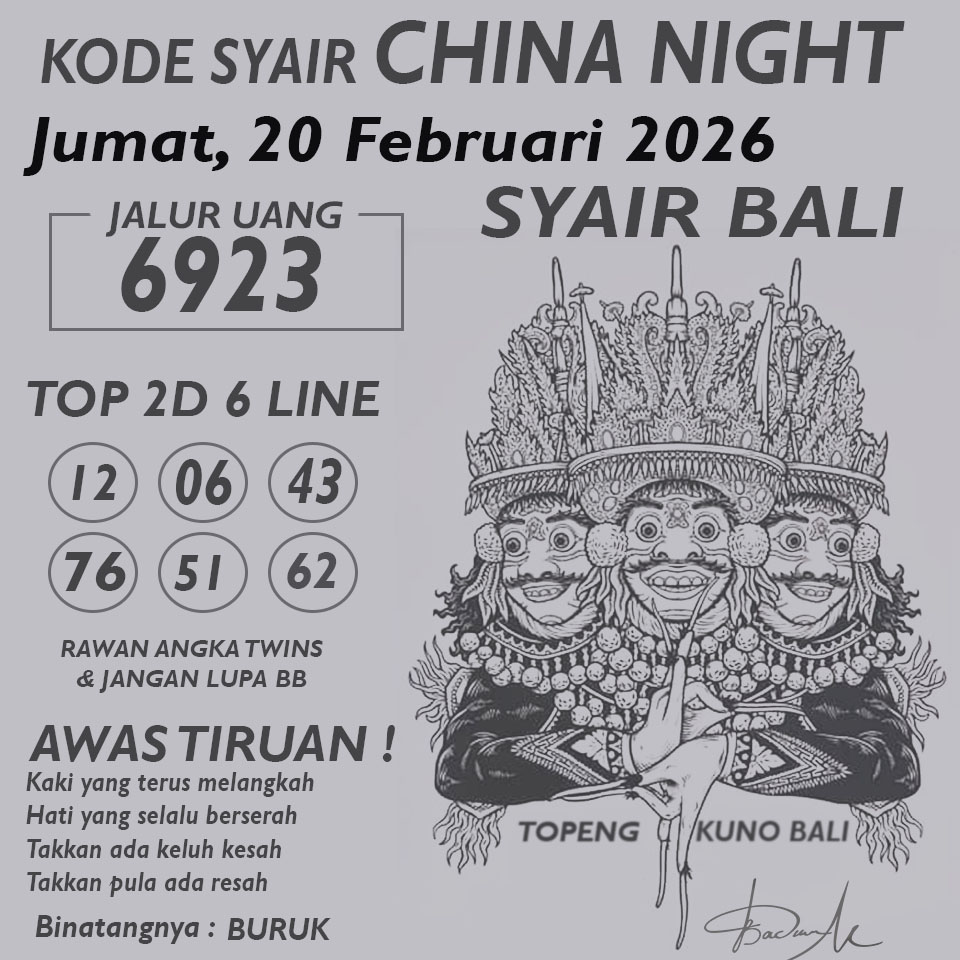 KODE SYAIR CHINA NIGHT
Jumat, 20 Februari 2026
SYAIR BALI
JALUR UANG
6923
TOP 2D 6 LINE
12 06 43
76 51 62
RAWAN ANGKA TWINS
& JANGAN LUPA BB
AWAS TIRUAN !
Kaki yang terus melangkah
Hati yang selalu berserah
Takkan ada keluh kesah
Takkan pula ada resah
Binatangnya : BURUK
TOPENG KUNO BALI